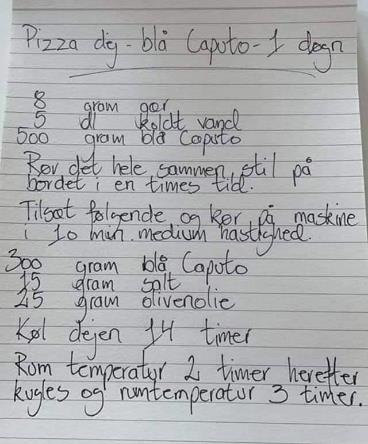 Pizza dej - blå Caputo - 1 døgn
8 gram gær
5 dl koldt vand
500 gram blå Caputo
Rør det hele sammen, stil på
bordet i en times tid.
Tilsæt følgende og kør på maskine
i 10 min. medium hastighed.
300 gram blå Caputo
15 gram salt
25 gram olivenolie
Køl dejen 14 timer
Rum temperatur 2 timer herefter
kugles og rumtemperatur 3 timer.